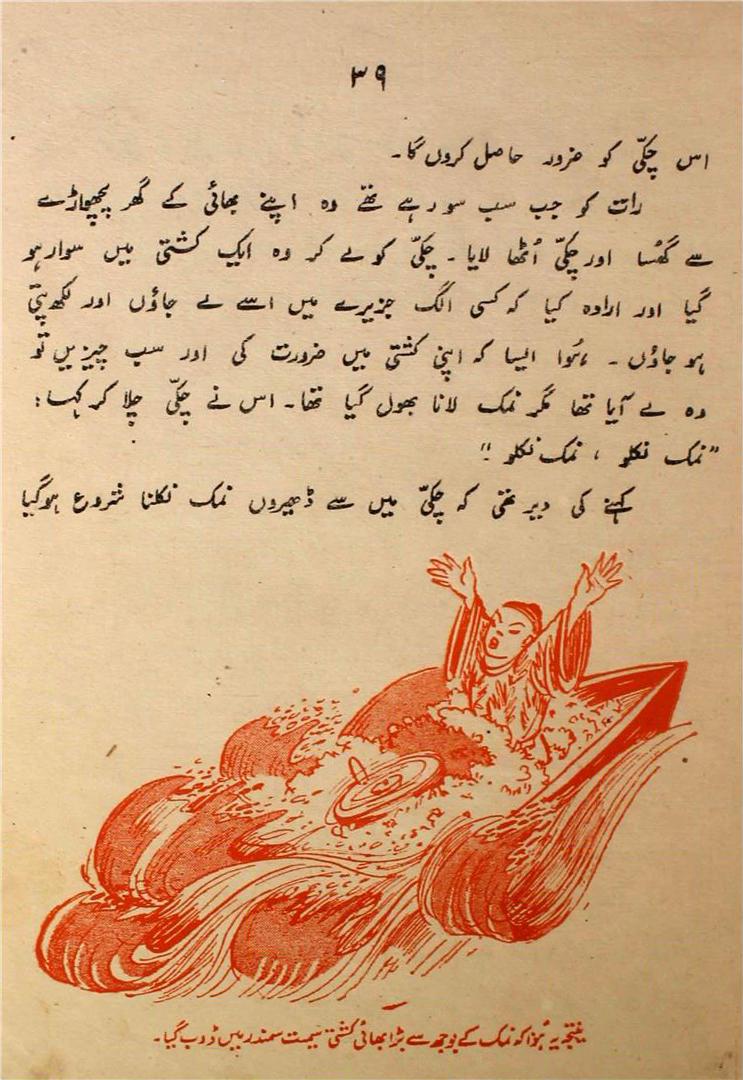 ۳۹
اس چکّی کو ضرور حاصل کروں گا۔
رات کو جب سب سو رہے تھے وہ اپنے بھائی کے گھر پچھواڑے
سے گھُسا اور چکّی اُٹھا لایا۔ چکّی کو لے کر وہ ایک کشتی میں سوار ہو
گیا اور ارادہ کیا کہ کسی الگ جزیرے میں اسے لے جاؤں اور لکھ پتی
ہو جاؤں۔ ہُوا ایسا کہ اپنی کشتی میں ضرورت کی اور سب چیزیں تو
وہ لے آیا تھا مگر نمک لانا بھول گیا تھا۔ اس نے چکّی چلا کر کہا:
"نمک نکلو، نمک نکلو!"
کہنے کی دیر تھی کہ چکّی میں سے ڈھیروں نمک نکلنا شروع ہوگیا
نتیجہ یہ ہُوا کہ نمک کے بوجھ سے بڑا بھائی کشتی سمیت سمندر میں ڈوب گیا۔